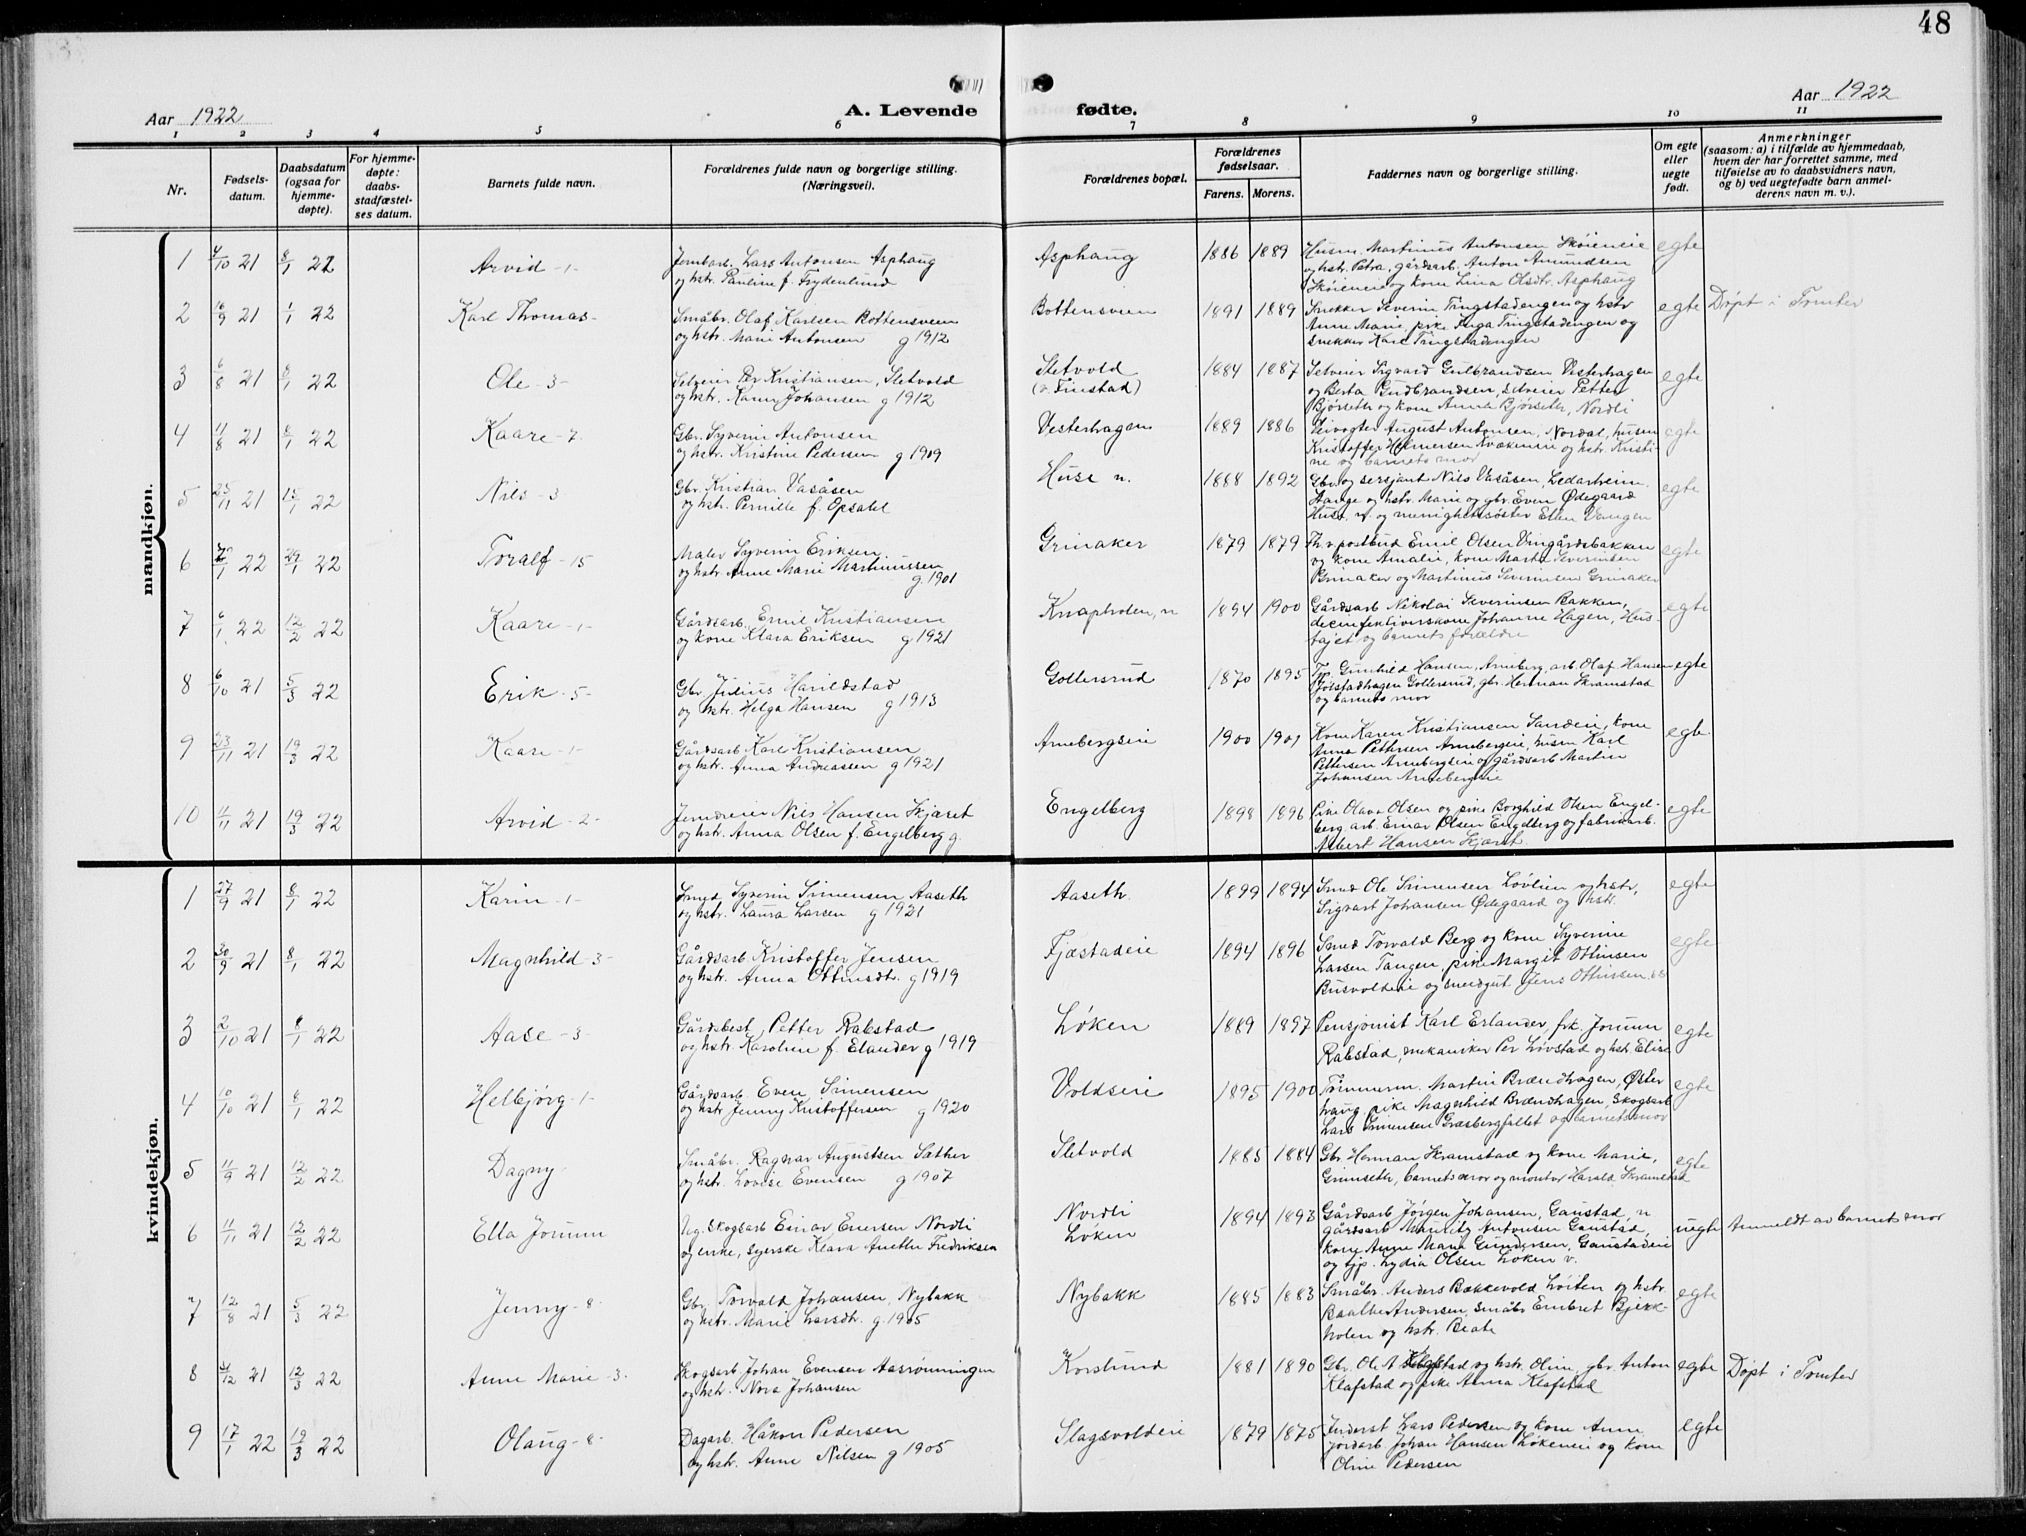 48
Aar 1922
A. Levende fødte.
Aar 1922
1 2 3 4 5 6 7 8 9 10 11
Nr.
Fødsels-
datum.
Daabsdatum
(ogsaa for
hjemme-
døpte).
For hjemme-
døpte:
daabs-
stadfæstel-
ses datum.
Barnets fulde navn.
Forældrenes fulde navn og borgerlige stilling.
(Næringsvei).
Forældrenes bopæl.
Forældrenes
fødselsaar.
Farens. Morens.
Faddernes navn og borgerlige stilling.
Om egte
eller
uegte
født.
Anmerkninger
(saasom: a) i tilfælde av hjemmedaab,
hvem der har forrettet samme, med
tilføielse av to daabsvidners navn,
og b) ved uegtefødte barn anmel-
derens navn m. v.).
mandkjøn.
1 4/10 21 8/1 22 Arvid -1- Jernbarb. Lars Antonsen Asphaug
og hstr. Pauline f. Frydenlund
Asphaug 1886 1889 Husm. Martinus Antonsen Skøieneie
og hstr. Petra, gårdsarb. Anton Amundsen
Skøieneie og kone Lina Olsdtr. Asphaug
egte
2 18/9 21 1/1 22 Karl Thomas- Småbr. Olaf Karlsen Bottensveen
og hstr. Marie Antonsen g 1912
Bottensveen 1891 1889 Snekker Severin Tingstadengen og hstr
Anne Marie, pike Inga Tingstadengen og
snekker Karl Tingstadengen
egte Døpt i Tomter
3 6/8 21 8/1 22 Ole -3- Selveier Per Kristiansen, Sletvold
og hstr. Karen Johansen g 1912
Sletvold
(v. Finstad) 1884 1887 Selveier Sigvard Gulbrandsen Vesterhagen
og Berta Gudbrandsen, selveier Petter
Bjørseth og kone Anna Bjørseth, Nordli
egte
4 11/8 21 8/1 22 Kaare -7. Gbr. Syverin Antonsen
og hstr. Kristine Pedersen g 1909
Vesterhagen 1889 1886 August Antonsen, Nordal, husm
Kristoffer Helmersen Kvækneie og hstr. Kristi-
ne og barnets mor
egte
5 25/11 21 15/1 22 Nils -3 Gbr. Kristian Vasåsen
og hstr. Pernille f. Opsahl
Huse n. 1888 1892 Gbr. og sersjant Nils Vasåsen, Ledarheim,
Stange og hstr. Marie og gbr. Even Ødegaard
Huse, n. og menighetssøster Ellen Vangen
egte
6 22 29/1 22 Toralf -15 Maler Syverin Eriksen
og hstr. Anne Marie Martinussen
g. 1901
Grinaker 1879 1879 Th. v. postbud Emil Olsen Vingårdsbakken
og kone Amalie, kone Marta Severinsen
Grinaker og Martinus Severinsen Grinaker
egte
7 6/1 22 12/2 22 Kaare -1- Gårdsarb. Emil Kristiansen
og kone Klara Eriksen g 1921
Knapholen, n 1894 1900 Gårdsarb Nikolai Severinsen Bakken,
decinfektionskone Johanne Hagen, Hus-
tøjet og barnets forældre
egte
8 6/10 21 5/3 22 Erik -5- Gbr. Julius Harildstad
og hstr. Helga Hansen g 1913
Gollersrud 1870 1895 Tj. Gunhild Hansen, Arneberg, arb. Olaf Hansen
Gollersrud, gbr. Herman Skramstad
og barnets mor
egte
9 23/11 21 19/3 22 Kaare -1- Gårdsarb Karl Kristiansen
og hstr. Anna Andreassen g 1921
Arnebergseie 1900 1901 Kone Karen Kristiansen Sandeie, kone
Anna Pettersen Arnebergeie, husm Karl
Pettersen Arnebergseie og gårdsarb Martin
Johansen Arnebergeie
egte.
10 11/11 21 19/3 22 Arvid -2- Jerndreier Nils Hansen Skjæset
og hstr. Anna Olsen f. Engelberg g.
Engelberg 1898 1896 Pike Olava Olsen og pike Borghild Olsen Engel-
berg, arb. Einar Olsen Engelberg og fabrikarb.
Albert Hansen Skjæset
egte
kvindekjøn.
1 27/9 21 8/1 22 Karin -1- Smed Syverin Simensen Aaseth
og hstr. Laura Larsen g 1921
Aaseth 1899 1894 Smed Ole Simensen Løvlien og hstr,
Sigvart Johansen Ødegaard og hstr.
egte
2 30/9 21 8/1 22 Magnhild -3- Gårdsarb Kristoffer Jensen
og hstr. Anna Ottinsdtr. g 1919
Fjæstadeie 1894 1896 Smed Torvald Berg og kone Syverine
Larsen Tangen, pike Margit Othinsen
Busvoldeie og smedgut Jens Othinsen s.s
egte
3 2/10 21 8/1 22 Aase -3- Gårdsbest. Petter Rabstad
og hstr. Karoline f. Elander g 1919
Løken 1889 1897 Pensjonist Karl Erlander, frk. Jorunn
Rabstad, mekaniker Per Løvstad og hstr Elise
egte
4 10/10 21 8/1 22 Helbjørg -1- Gårdsarb Even Simensen
og hstr Jenny Kristoffersen g 1920
Voldseie 1895 1900 Tømmerm. Martin Brændhagen, Øster
haug, pike Magnhild Brændhagen, skogsarb
Lars Simensen Græsbergfallet og barnets mor
egte
5 11/9 21 12/2 22 Dagny- Småbr. Ragnar Augustsen Sæther
og hstr. Lovise Evensen g 1907
Sletvold 1885 1884 Gbr. Herman Skramstad og kone Marie,
Grimseth, barnets mor og montør Harald Skramstad
egte
6 11/11 21 12/2 22 Ella Jorunn Ug. skogsarb Einar Enersen Nordli
og enke, syerske Klara Anette Fredriksen
Nordli
Løken 1894 1893 Gårdsarb Jørgen Johansen, Gaustad, n
gårdsarb Mauritz Antonsen Gaustad,
kone Anne Marie Gundersen, Gaustadeie
og tjp. Lydia Olsen Løken v.
uegte Anmeldt av barnets mor
7 12/8 21 5/3 22 Jenny -8- Gbr Torvald Johansen, Nybakk
og hstr. Marie Larsdtr. g. 1905
Nybakk 1885 1883 Småbr. Anders Bækkevold Løiten og hstr
Andersen, småbr Embret Bjerk-
holen og hstr. Beate
egte
8 21 12/3 22 Anne Marie -3. Skogsarb Johan Evensen Aasrønningen
og hstr. Nora Johansen
Korslund 1881 1890 Gbr. Ole A Klafstad og hstr. Oline, gbr. Anton
Klafstad og pike Anna Klafstad
egte Døpt i Tomter
9 17/1 22 19/3 22 Olaug -8- Dagarb. Håkon Pedersen
og hstr. Anne Nilsen g 1905
Slagsvoldeie 1879 1875 Inderst Lars Pedersen og kone Anne
jordarb. Johan Hansen Løkeneie og kone
Oline Pedersen
egte